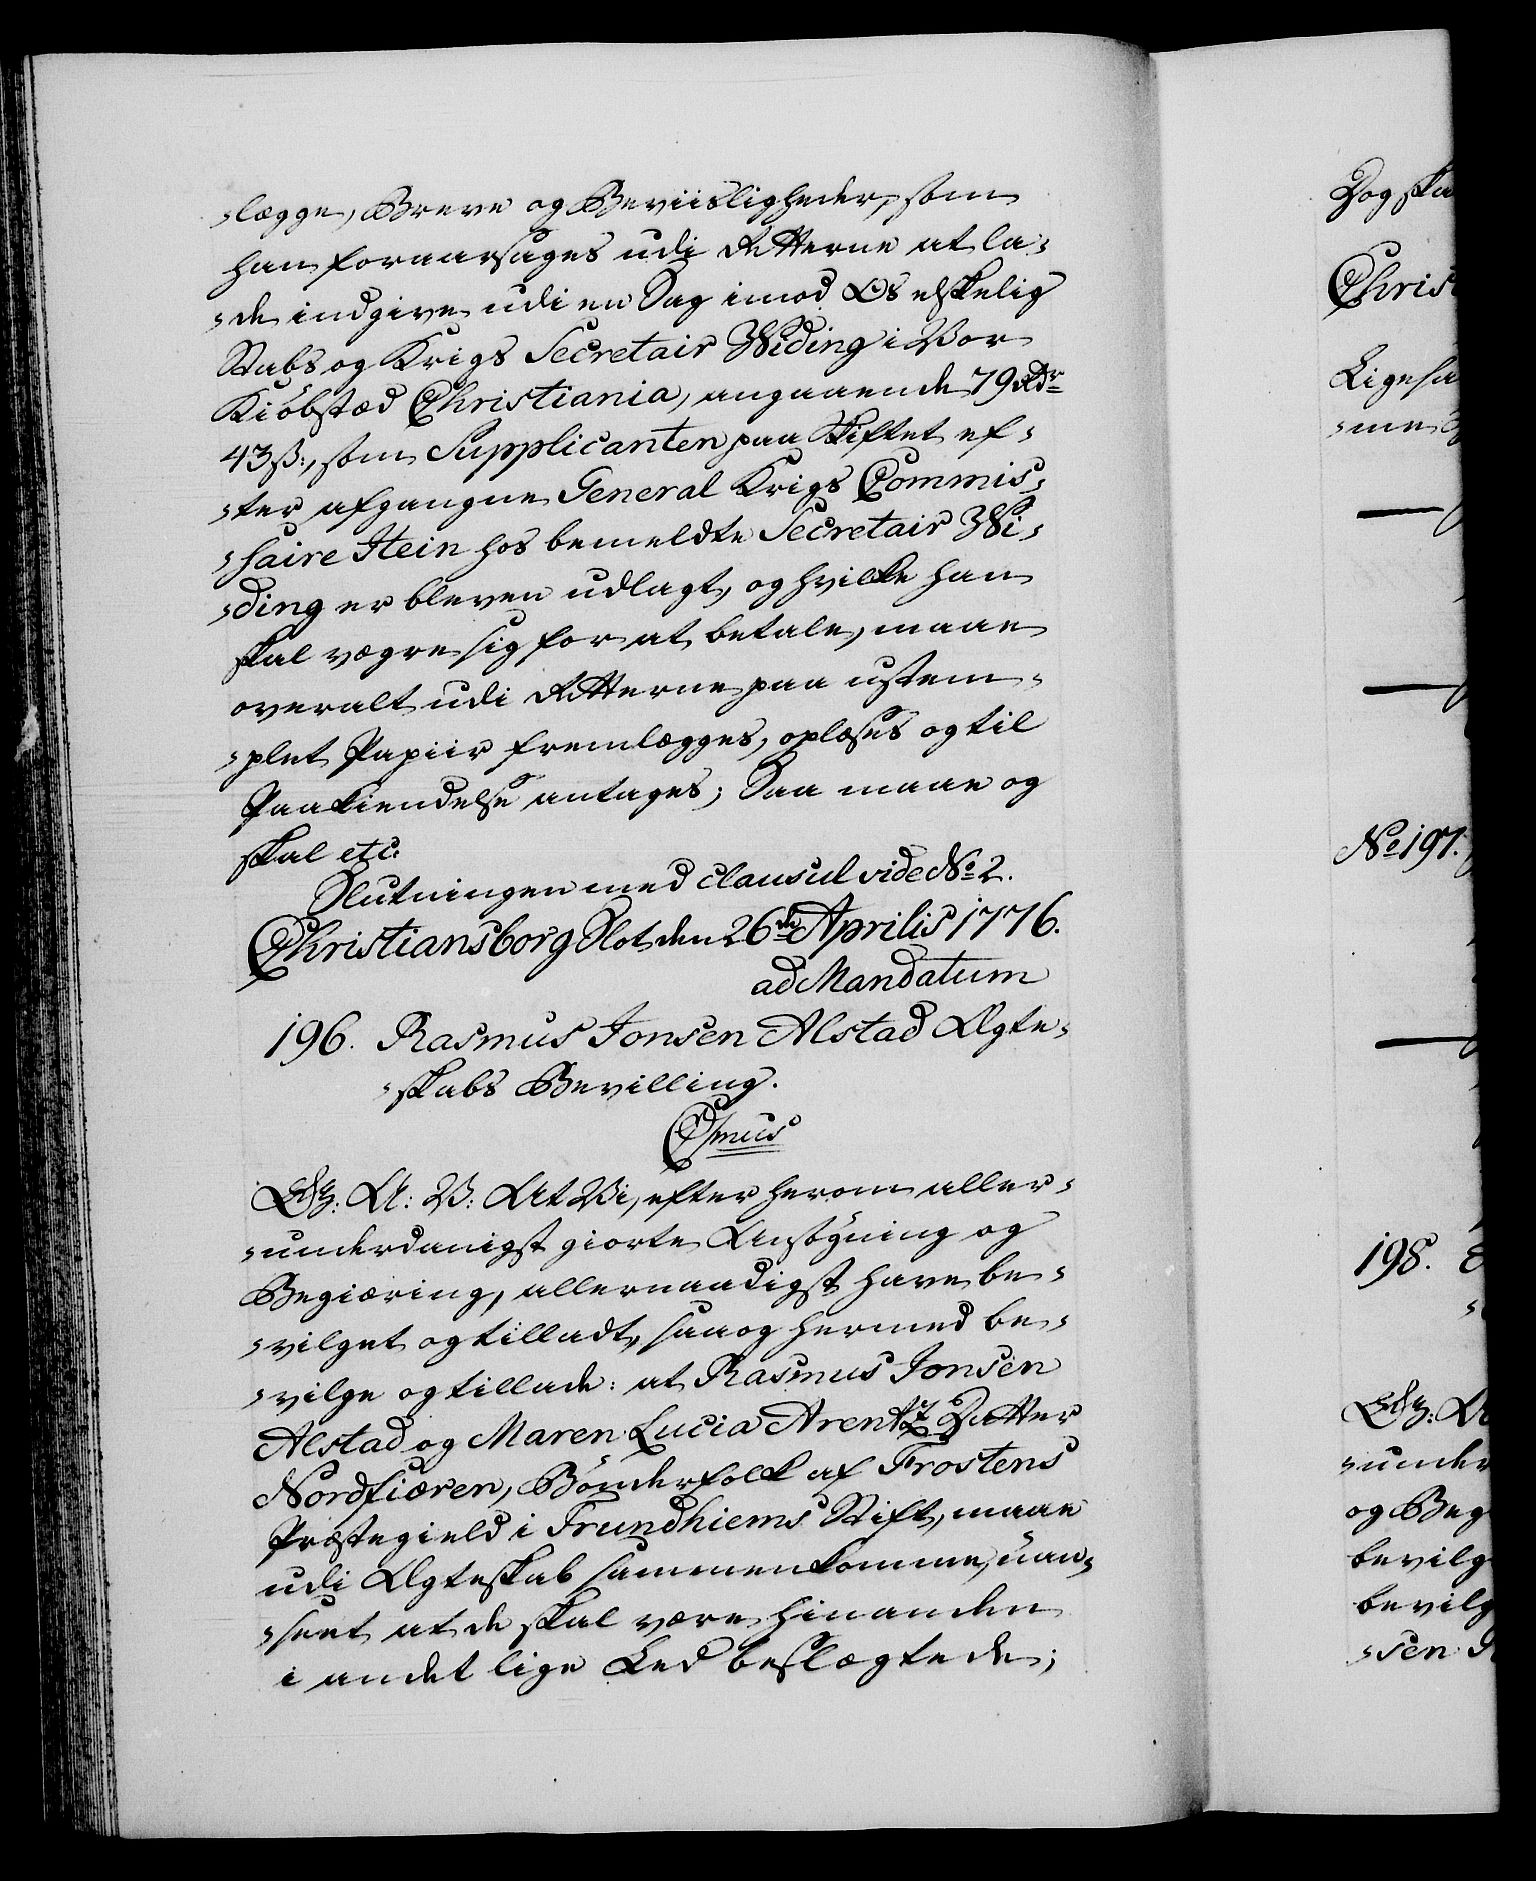 -lægge, Breve og Beviisligheder, som
han foraarsages udi Retterne at la-
-de indgive udi en Sag imod Os elskelig
Stabs og Krigs Secretair Widing i Vor
Kiøbstæd Christiania, angaaende 79 Rdr
43 ß:, som Supplicanten paa Skiftet ef-
-ter afgangne General Krigs Commis-
-saire Stein hos bemeldte Secretair Wi-
-ding er bleven udlagt, og hvilke han
skal vægre sig for at betale, maae
overalt udi Retterne paa ustem-
-plet Papiir fremlægges, oplæses og til
Paakiendelse antages; Saa maae og
skal etc:
Slutningen med clausul vide No 2.
Christiansborg Slot den 26de Aprilis 1776.
ad Mandatum
196. Rasmus Jonsen Alstad Ægte-
-skabs Bevilling.
C7mus
G: A: V: At Vi, efter herom aller-
-underdanigst giorte Ansøgning og
Begiæring, allernaadigst have be-
-vilget og tilladt, saa og hermed be-
-vilge og tillade: at Rasmus Jonsen
Alstad og Maren Lucia Arentz Datter
Nordfiæren, Bønderfolk af Frostens
Præstegield i Trundhiems Stift, maae
udi Ægteskab sammenkomme, uan-
-seet at de skal være hinanden
i andet lige Led beslægtede;
Dog ska
Chris
Ligesa
-me
No 197.
198.
-under
og Beg
bevilg
bevilg
-sen